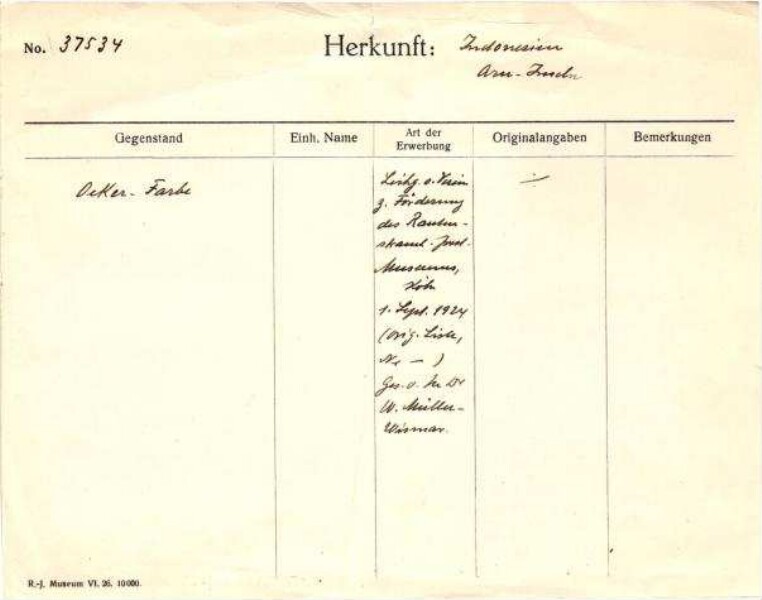 No. 37534 Herkunft: Indonesien
Aru-Inseln
Gegenstand Einh. Name Art der Erwerbung Originalangaben Bemerkungen
Ocker-Farbe
v. Verein
z. Förderung
des Rauten-
strauch-Joest-
Museums,
Köln
1. Sept. 1924
(Orig. Liste,
No — )
Ges. v. Dr
W. Müller-
Wismar.
R.-J. Museum VI. 26. 10000.